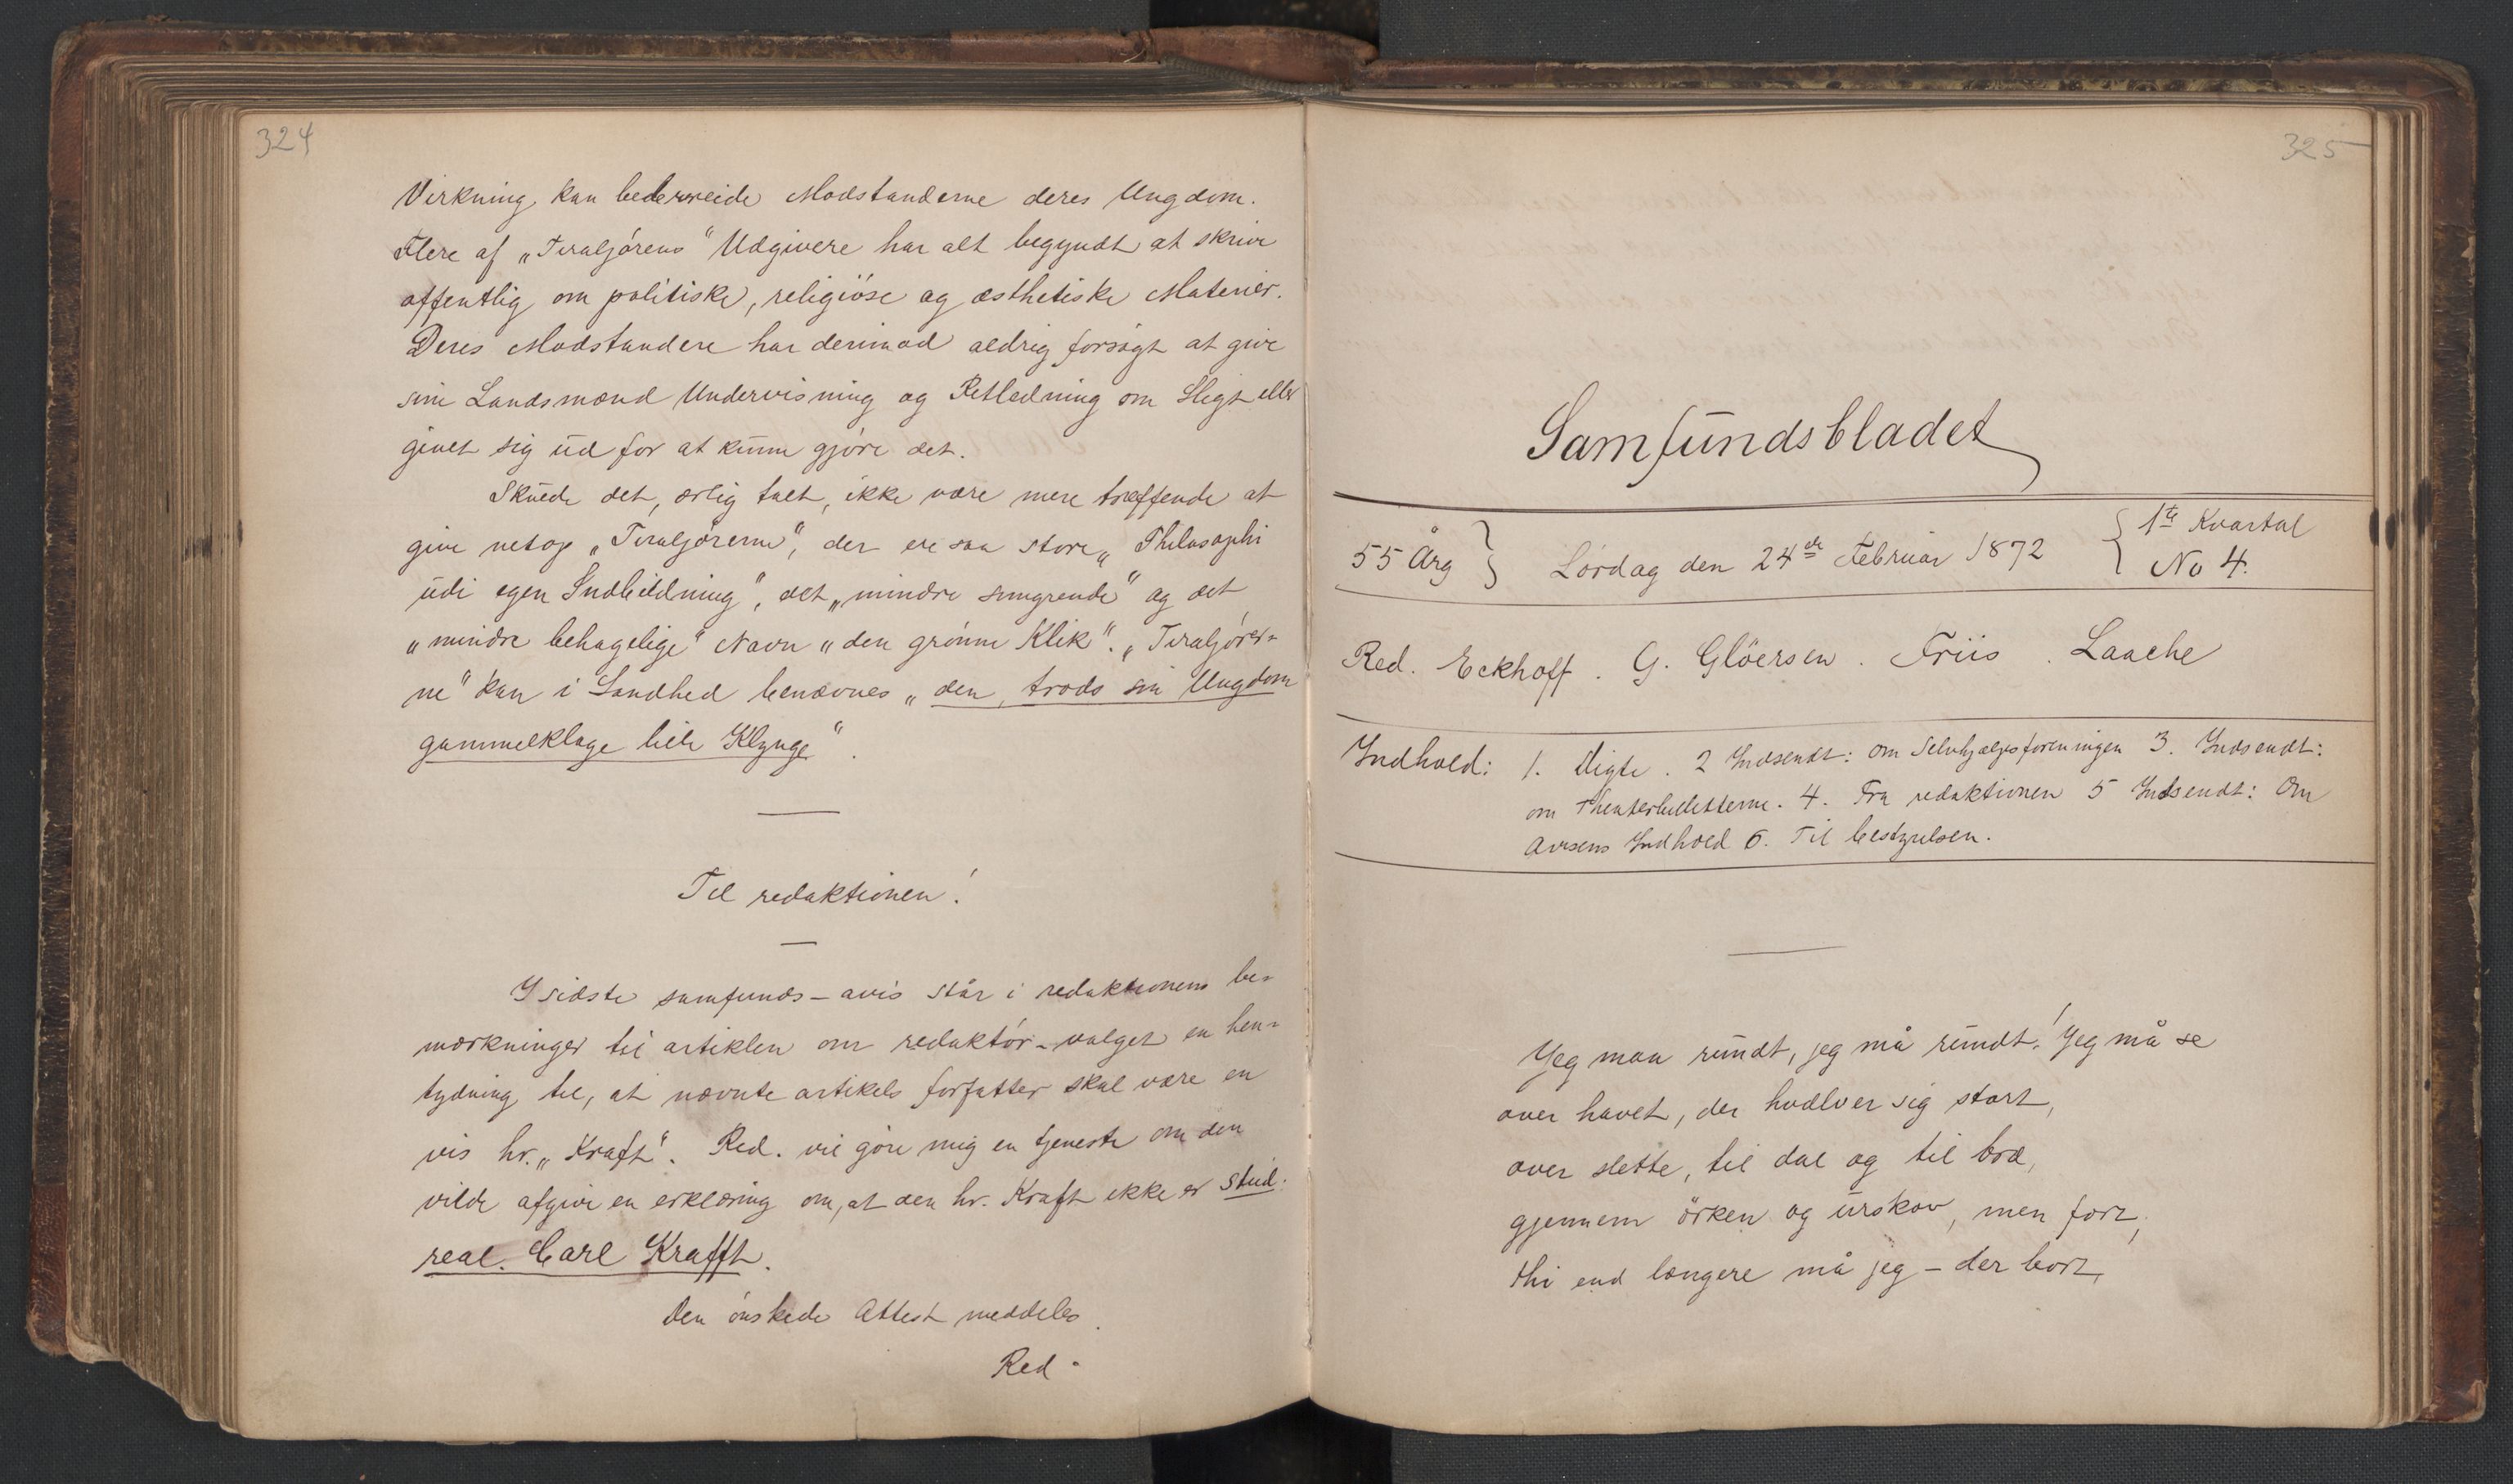 324
Virkning kan bebreide Modstanderne deres Ungdom.
Flere af „Tiraljørens“ Udgivere har alt begyndt at skrive
offentlig om politiske, religiøse og æsthetiske Materier.
Deres Modstandere har derimod aldrig forsøgt at give
sine Landsmænd Undervisning og Retledning om Sligt eller
givet sig ud for at kunne gjøre det.
Skulde det, ærlig talt, ikke være mere træffende at
give netop „Tiraljørerne“, der ere saa store „Philosophi
udi egen Indbildning“, det „mindre smigrende“ og det
„mindre behagelige“ Navn „den grønne Klik“. „Tiraljører-
ne“ kan i Sandhed benævnes „den, trods sin Ungdom
gammelkloge lille Klynge“.
Til redaktionen!
I sidste samfunds-avis står i redaktionens be-
mærkninger til artiklen om redaktør-valget en hen-
tydning til, at nævnte artikels forfatter skal være en
vis hr. „Kraft“. Red. vil gøre mig en tjeneste om den
vilde afgive en erklæring om, at den hr. Kraft ikke er stud.
real. Carl Krafft.
Den ønskede Attest meddeles.
Red.
325
Samfundsbladet
55 Årg } Lørdag den 24de Februar 1872 { 1ste Kvartal
No 4.
Red. Eckhoff. G. Glöersen. Friis. Laache
Indhold: 1. Digte. 2 Indsendt: om Selvhjælpsforeningen 3. Indsendt:
om Theaterbilletterne. 4. Fra redaktionen 5 Indsendt: Om
Avisens Indhold 6. Til bestyrelsen.
Jeg maa rundt, jeg må rundt! Jeg må se
over havet, der hvælver sig stort,
over slette, til dal og til bræ,
gjennem örken og urskov, men fort,
thi end længere må jeg – der bort,